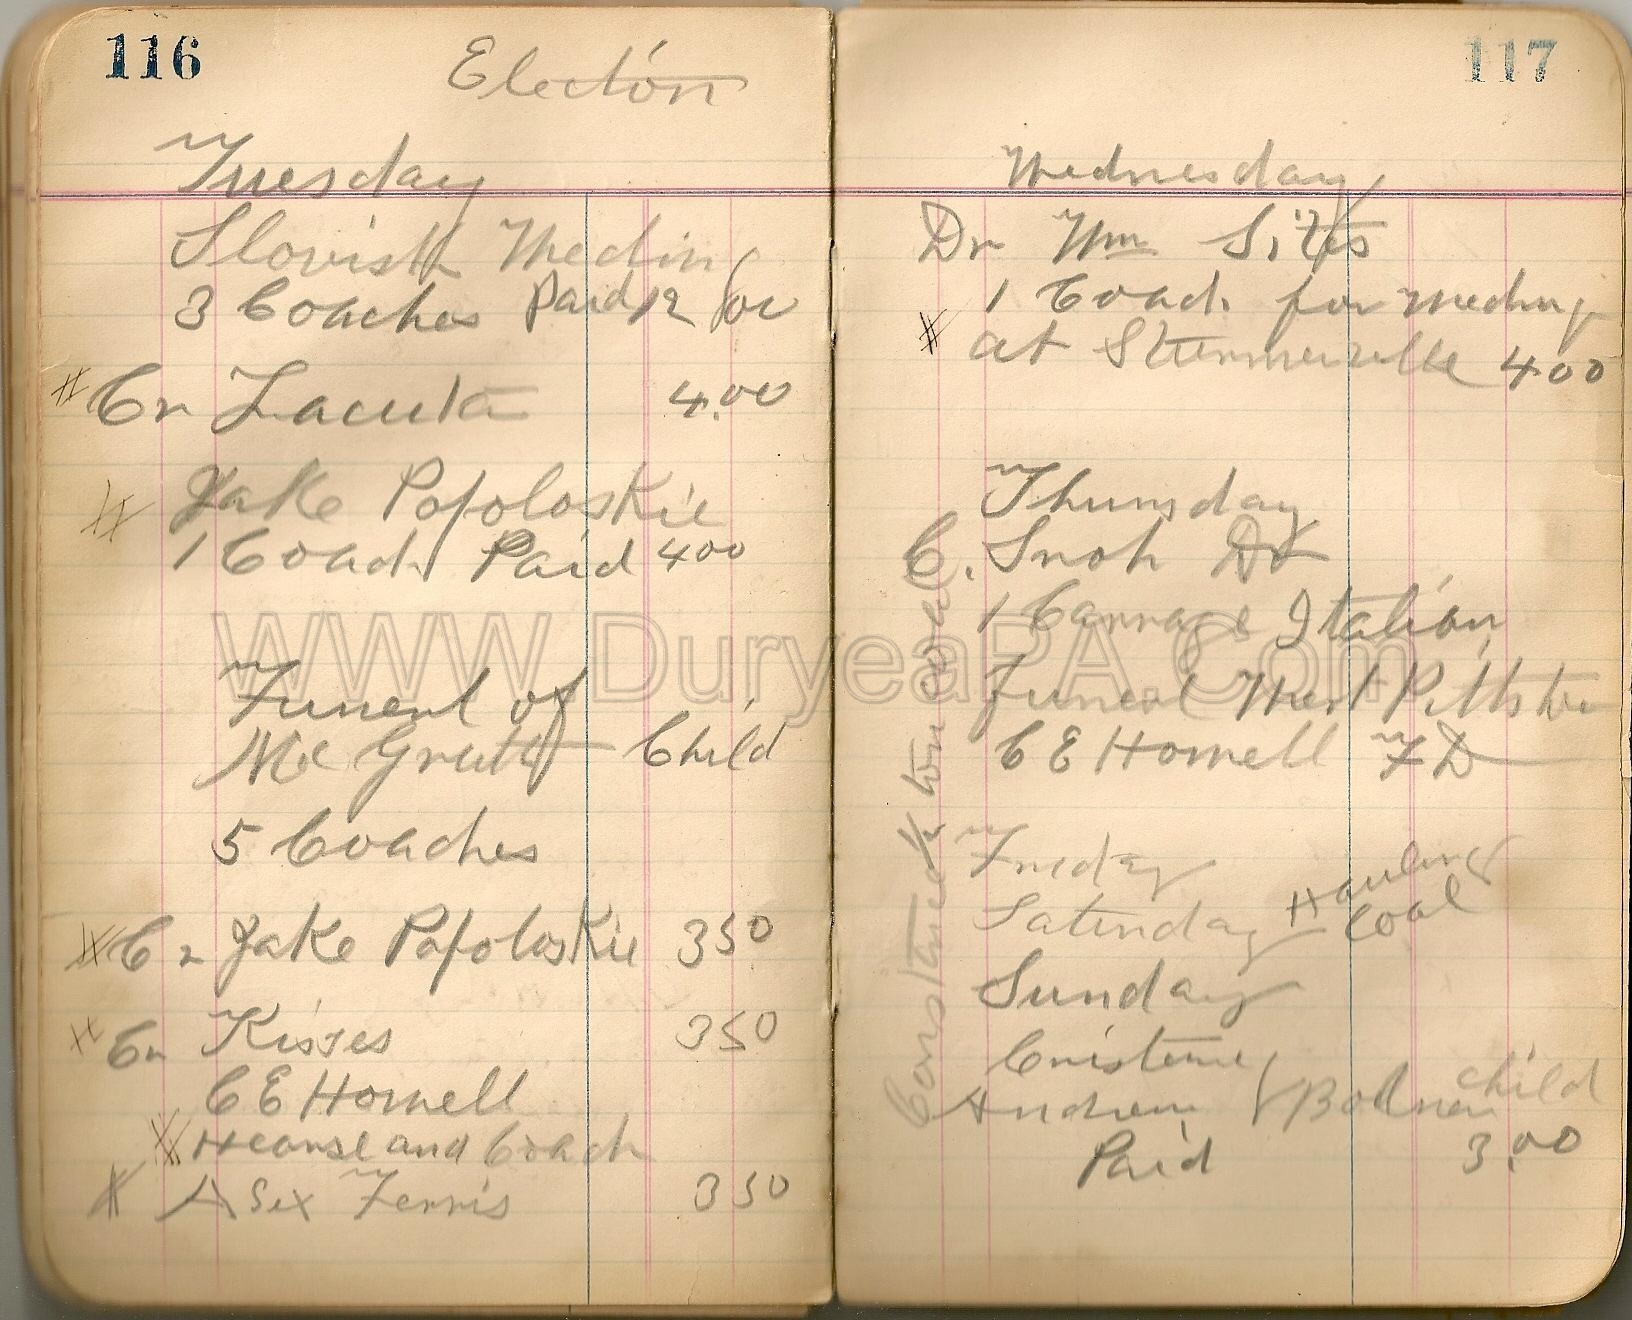 116
Election
Tuesday
Slovish Weding
3 Coaches Paid 12 00
# Cr Lacuta 4.00
# Jake Popoloskie
1 Coach Paid 400
Funeral of
Mc Grath Child
5 Coaches
# Cr Jake Popoloskie 350
# Cr Kisses 350
C E Hornell
# Hearse and Coach
# Ferris 350
117
Wednesday
Dr Wm Sites
1 Coach for Weding
# at Sturmerville 400
Thursday
C. Snoh Dr
1 Carrage Italion
Funeral West Pittston
C E Hornell F D
Friday
Saturday Hauling
Coal
Sunday
Cristening
Andrew child
Paid 3.00
ton coal
WWW.DuryeaPA.Com